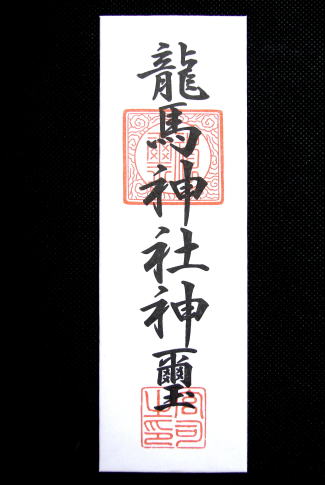 龍馬神社神璽